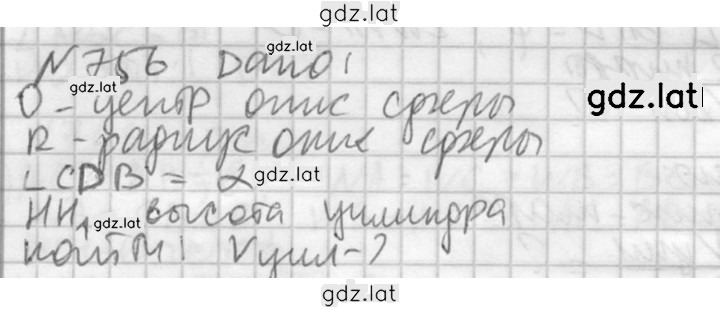 gdz.lat
N 756 Дано:
gdz.lat
О - центр опис сферы
gdz.lat
R - радиус опис сферы
∠CDB = α
gdz.lat
HH₁ высота цилиндра
gdz.lat
Найти: Vцил-?
gdz.lat